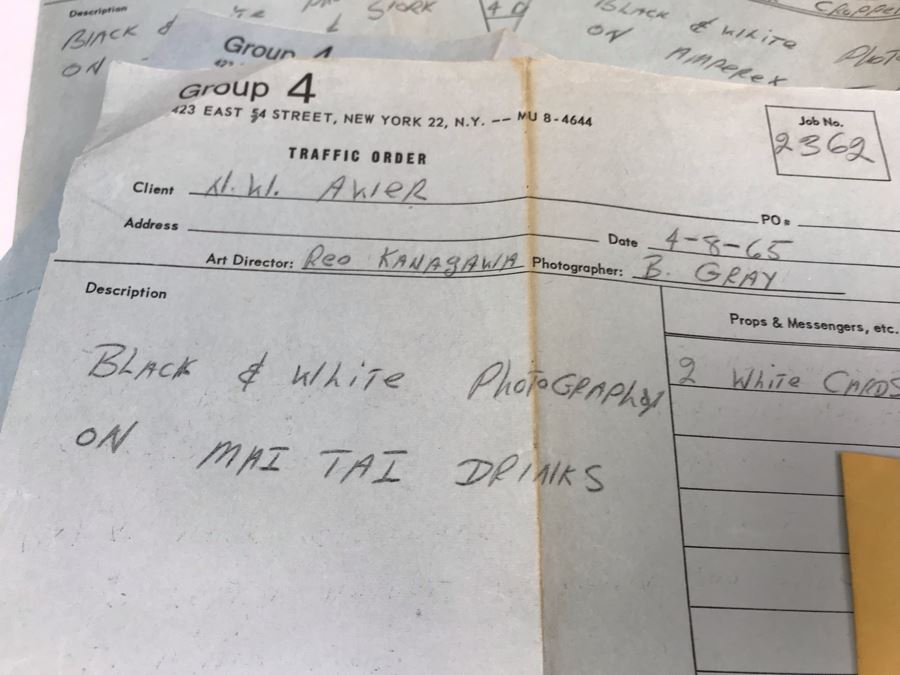 Description
BLACK &
ON
& STORK
BLACK & WHITE PHOTO
ON AMPEREX
Group 4
Group 4
423 EAST 54 STREET, NEW YORK 22, N.Y. –– MU 8-4644
Job No.
2362
TRAFFIC ORDER
Client N.W. AYIER
PO#
Address
Date 4-8-65
Art Director: Reo KANAGAWA Photographer: B. GRAY
Description
Props & Messengers, etc.
2 White CARDS
BLACK & White PHOTOGRAPHY
ON MAI TAI DRINKS